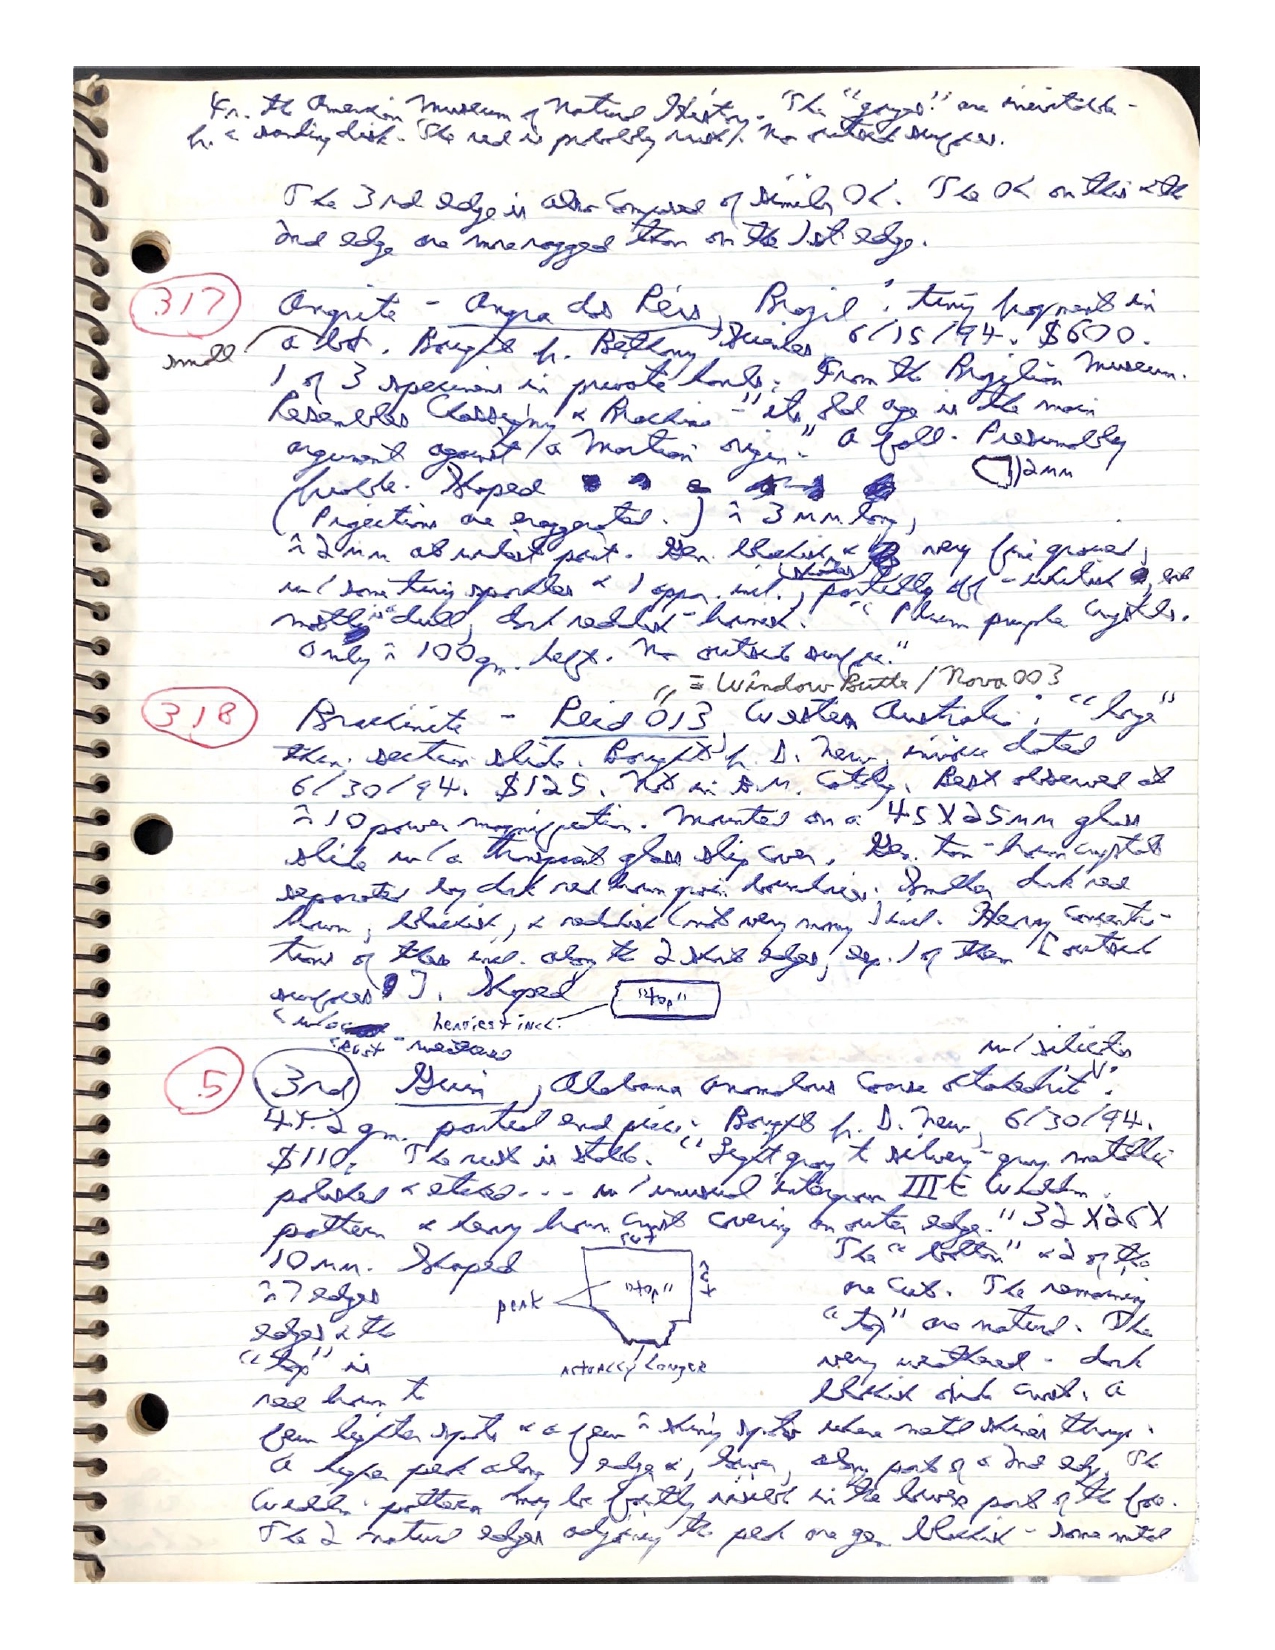 Fr. the American Museum of Natural History. The "gouges" are inevitable -
fr. a sanding disk. The red is probably rust. No outside surfaces.
The 3rd edge is also composed of similar OK. The OK on this & the
2nd edge are more ragged than on the 1st edge.
317
Angrite - Angra dos Reis, Brazil: tiny fragment in
small
a bot. Bought fr. Bethany Sciences, 6/15/94. $600.
1 of 3 specimens in private hands. From the Brazilian Museum.
Resembles Chassigny & Brachina - "its old age is the main
argument against a Martian origin." A fall. Presumably
friable. Shaped
2mm
(Projections are exaggerated.) ≈ 3 mm long,
≈ 2 mm at widest part. Gen. blackish & very fine grained,
w/ some tiny sparkles & 1 appar. incl., partially off-whitish
mostly dull, dark reddish-brown. "Plum purple crystals.
Only ≈ 100 gm. left. No outside surface."
= Window Butte / Nova 003
318
Brachinite - Reid 013, Western Australia: "large"
thin section slide. Bought fr. D. New, invoice dated
6/30/94. $125. Not in D.N. Catalog. Best observed at
≈ 10 power magnification. Mounted on a 45 X 25 mm glass
slide w/ a transparent glass slip cover. Gen. tan-brown crystals
separated by dark red brown grain boundaries. Smaller dark red
brown, blackish, & reddish (not very many) incl. Heavy concentra-
tions of these incl. along the 2 short edges, esp. 1 of them [outside
surfaces ?]. Shaped
"top"
heaviest incl.
crust - meteors
w/ silicates
5
3rd
Guin, Alabama anomalous coarse octahedrite:
45.2 gm. partial end piece. Bought fr. D. New, 6/30/94.
$110. The rust is stable. "Light gray to silvery-gray metallic
polished & etched... w/ unusual intergrown III E Widdm.
pattern & heavy brown crust covering on outer edge." 32 X 26 X
10 mm. Shaped
cut
"top"
cut
peak
actually longer
The "bottom" & 2 of the
≈ 7 edges
are cut. The remaining
edges & the
"top" are natural. The
"top" is
very weathered - dark
red brown to
blackish oxide crust. A
few lighter spots & a few ≈ shiny spots where metal shines through.
A large peak along 1 edge &, lower, along part of a 2nd edge. The
Widdm. pattern may be faintly visible in the lower part of the face.
The 2 natural edges adjoining the peak are gen. blackish - some metal